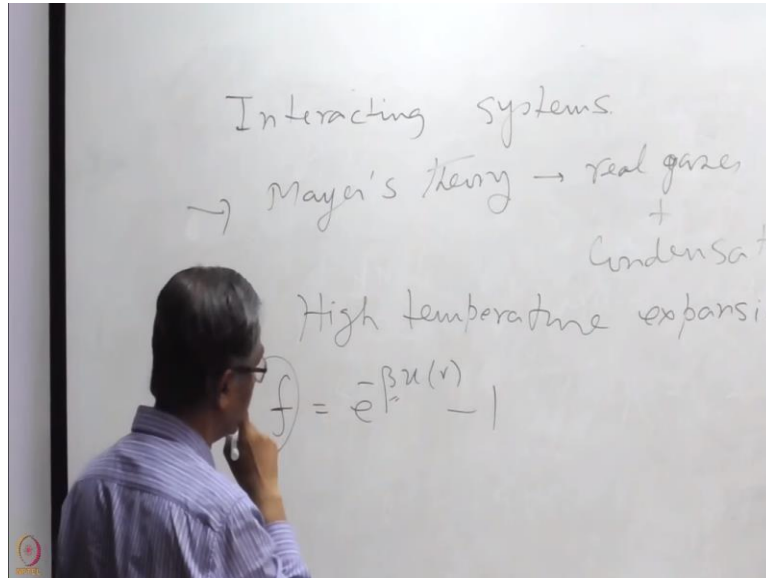 Interacting systems
→ Mayer's theory → real gases
+
Condensat
High temperature expansi
f = e^{-βu(r)} - 1